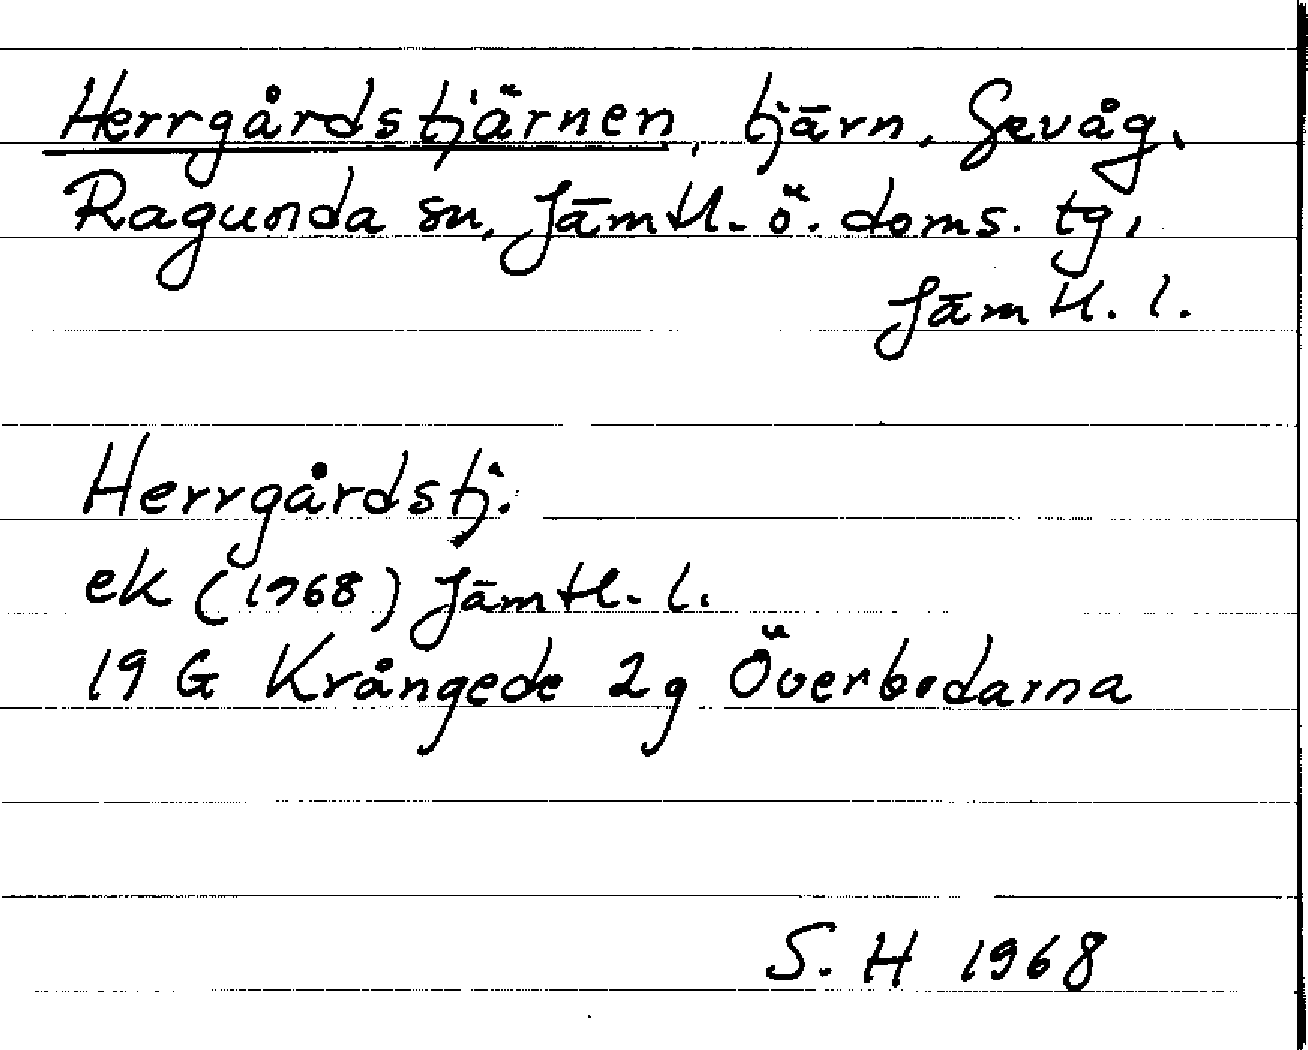 Herrgårdstjärnen, tjärn, Gevåg,
Ragunda sn, Jämtl. ö. doms. tg,
Jämtl. l.
Herrgårdstj.
ek (1968) Jämtl. l.
19 G Krångede 2g Överbodarna
S. H 1968